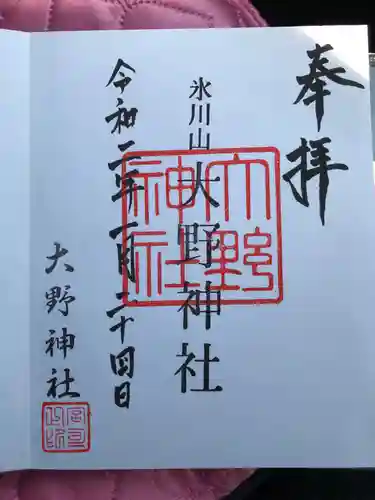 奉拝
氷川山
大野神社
大野神社
令和二年一月二十四日
大野神社